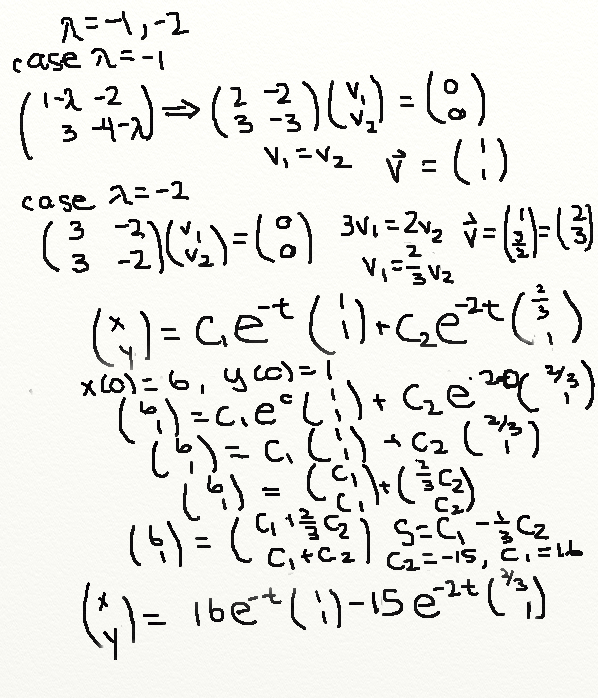 λ=-1,-2
case λ=-1
(1-λ -2; 3 -4-λ) ⇒ (2 -2; 3 -3)(v₁; v₂) = (0; 0)
v₁=v₂ v⃗ = (1; 1)
case λ=-2
(3 -2; 3 -2)(v₁; v₂)=(0; 0) 3v₁=2v₂ v⃗=(1; 3/2)=(2; 3)
v₁=2/3v₂
(x; y) = c₁e^-t (1; 1)+c₂e^-2t (2/3; 1)
x(0)=6, y(0)=1
(6; 1)=c₁e⁰(1; 1)+ c₂e^-2·0(2/3; 1)
(6; 1)= c₁(1; 1) + c₂ (2/3; 1)
(6; 1) = (c₁; c₁)+(2/3c₂; c₂)
(6; 1)= (c₁+2/3c₂; c₁+c₂) 5=c₁-1/3c₂
c₂=-15, c₁=16
(x; y)= 16e^-t(1; 1)-15e^-2t(2/3; 1)